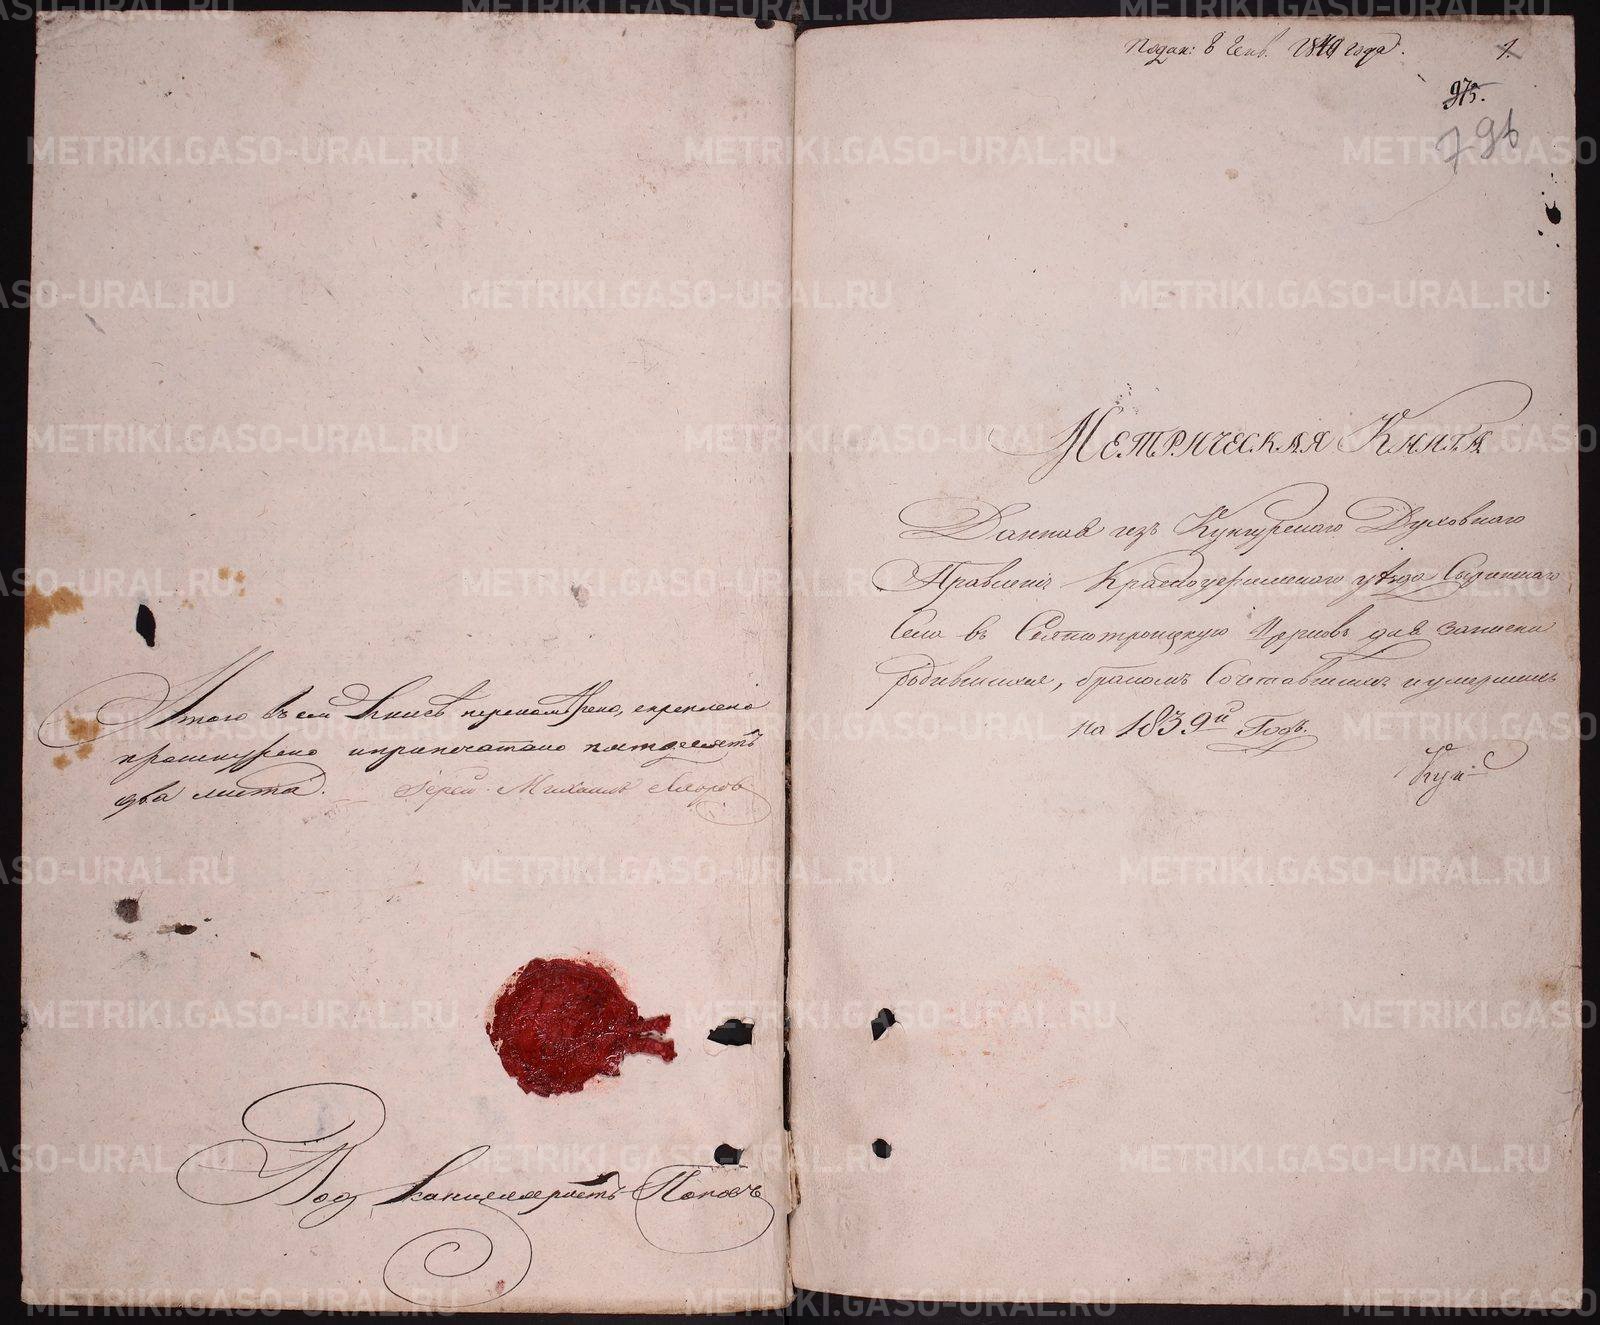 Итого въ сей Книгѣ перенумѣрено, скреплено
прошнурено и припечатано пятдесятъ
два листа. Іерей Михаилъ
Под Канцеляристъ Поповъ
Подан: 8 Генв. 1840 года.
1.
975.
796
Метрическая Книга
Данная изъ Кунгурскаго Духовнаго
Правленія Красноуфимскаго уѣзда Сыринскаго
Села въ Святотроицкую Церковь для записки
родившихся, бракомъ Сочетавшихся и умершихъ
на 1839й Годъ.
METRIKI.GASO-URAL.RU